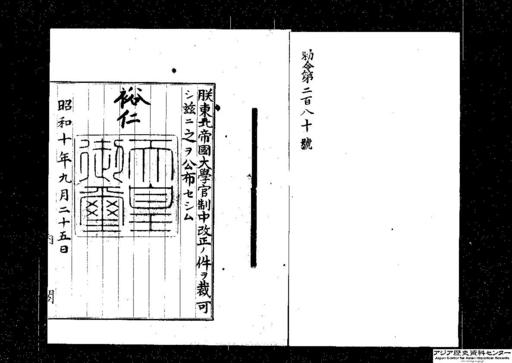 勅令第二百八十號
朕東北帝國大學官制中改正ノ件ヲ裁可
シ茲ニ之ヲ公布セシム
裕仁
天皇御璽
昭和十年九月二十五日
内閣
アジア歴史資料センター
Japan Center for Asian Historical Records